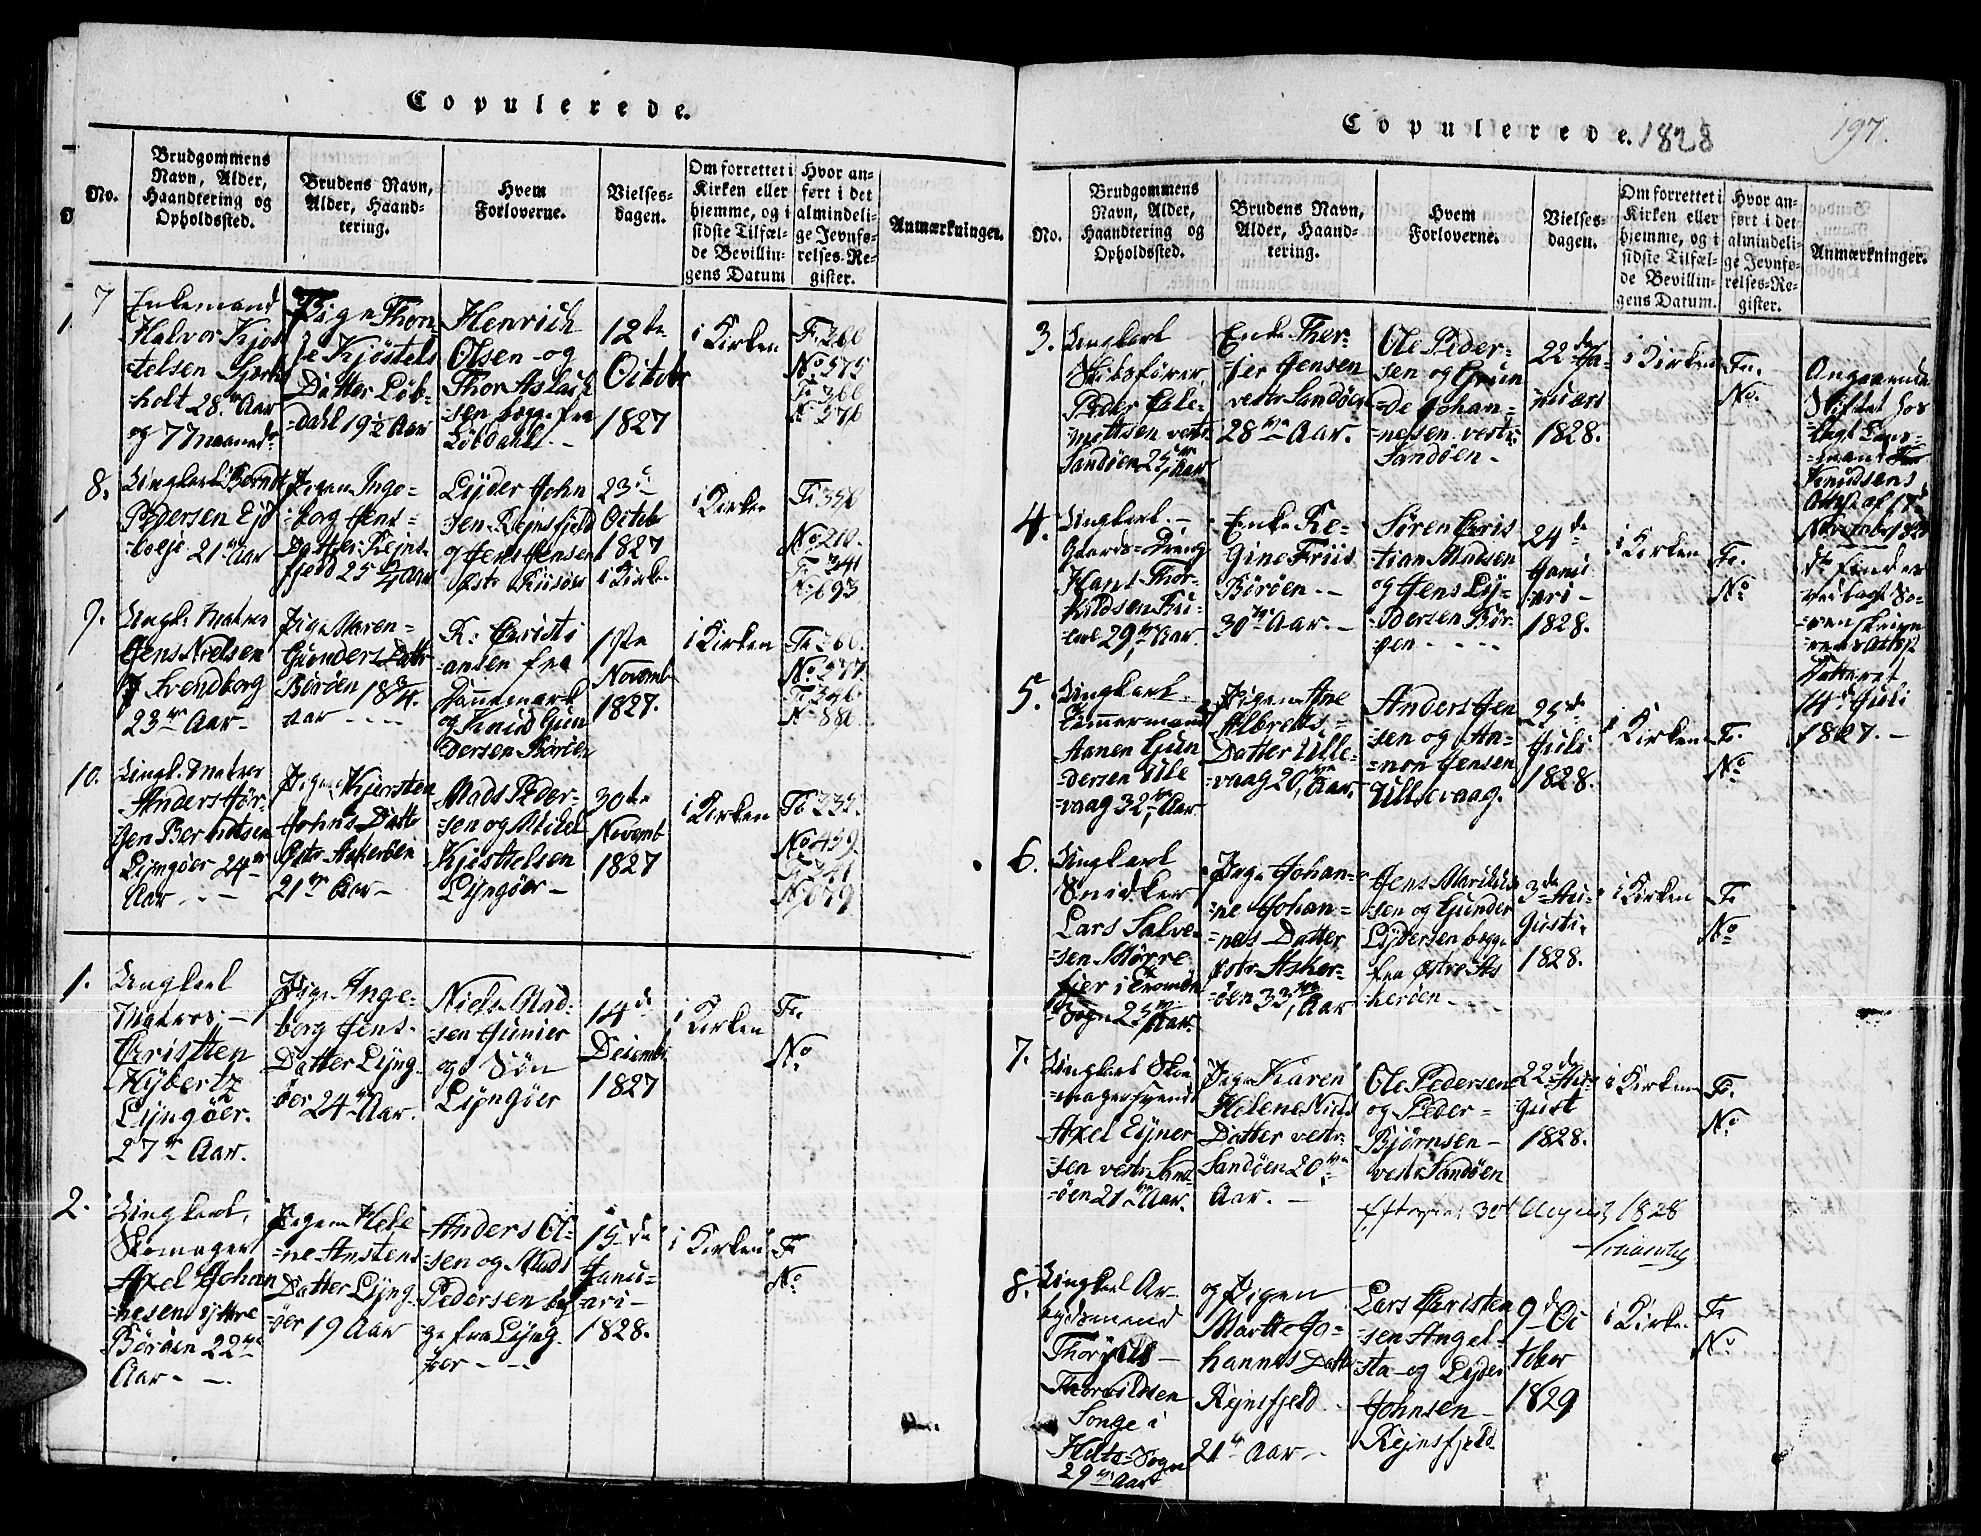 Copulerede.
No.
Brudgommens
Navn, Alder,
Haandtering og
Opholdssted.
Brudens Navn,
Alder, Haand-
tering.
Hvem
Forloverne.
Vielses-
dagen.
Om forrettet i
Kirken eller
hjemme, og i
sidste Tilfæl-
de Bevillin-
gens Datum
Hvor an-
ført i det
almindeli-
ge Jevnfø-
relses-Re-
gister.
Anmærkninger.
7
Enkemand
Halvor Kjøs
telsen
holt 28 Aar
og 7 maaneder
Pigen Thon
Kjøstels
Datter Løb-
=dahl 19½ Aar
Henrich
Olsen og
Thor Aslach
sen begge fra
Løbdahl.-
12te
Octobr
1827
i Kirken
Fo 266
No 575
8.
Ungkarl Berndt
Pedersen Eid
=boeje 21 Aar
Pigen Inge-
=borg Jens-
Datter Rejns-
fjeld 25 Aar
Lyder John
sen Rejnsfjeld
og Jens Jensen
Riisøer
23de
Octobr
1827
i Kirken
i Kirken
No 210.
Fo 341
No 693
9.
Ungk. Matros
Jens Nielsen
Svendborg
23 Aar-
Pigen Maren-
Gunders Dattr
Børøen 18¾
Aar - - - -
K: Christi
ansen fra
Dannemark
og Knud Gun
dersen Børøen
1ste
Novemb
1827.
i Kirken
Fo 266.
No 577
10.
Ungk. Matros
Anders Jør-
gen Berndtsen
Lyngøer 24
Aar - - -
Pigen Kjersten
Johns Datte
Østr Askerøen
21 Aar -
Mads Peder-
sen og Mikel
Kjøstelsen
Lyngøer -
30te
Novemb
1827
i Kirken
Fo 332.
No 459.
Fo 341
No 679
1.
Ungkarl
Matros -
Christen
Hybertz
Lyngøer.
27 Aar.
Pigen Inge-
borg Jens-
Datter Lyng-
øer 24 Aar.
Niels Mad-
sen Junier
og Søn
Lyngøer
14de
Decembr
1827
i Kirken
Fo
No
2.
Ungkarl,
Skomager
Axel Johan
=nesen yttre
Børøen 22
Aar - -
Pigen Hele
=ne Anstens
Datter Lyng-
øer 19 Aar
Anders Ol-
sen og Mads
Pedersen beg
ge fra Lyng-
øer - - -
15de
Janu-
ari -
1828.
i Kirken
Fo
No
Copulerede. 1828
197.
No.
Brudgommens
Navn, Alder,
Haandtering og
Opholdssted.
Brudens Navn,
Alder, Haand-
tering.
Hvem
Forloverne.
Vielses-
dagen.
Om forrettet i
Kirken eller
hjemme, og i
sidste Tilfæl-
de Bevillin-
gens Datum.
Hvor an-
ført i det
almindeli-
ge Jevnfø-
relses-Re-
gister.
Anmærkninger.
3.
Ungkarl
Skibsfører
Peder
vestr
Sandøen 25 Aar
Enke Ther-
Jensen
vestr Sandøen
28 Aar.
Ole Peder-
sen og Grun
=de Johan-
nessen vestr
Sandøen -
22de Ja-
nuari
1828.
i Kirken
Fo.
No.
Angaaende
Skiftet
Knudsens
Attest af 17de
Novemb 182
14de Juli
1827. -
4.
Ungkarl -
Gaards-Dreng
Hans Thor-
kildsen
29 Aar
Enke Re-
Gine Friis
Børøen. -
30 Aar. -
Søren Chris
tian Madsen
og Jens Ly-
dersen Bør-
øen - - - -
24de
Janu
ari -
1828.
i Kirken
Fo.
No
5.
Ungkarl
Timmermand
Aanen Gun
dersen Ule
=vaag 32 Aar
Pigen Ane
Albrets-
Datter Ulle-
=vaag 20 Aar.
Anders Jen
sen og An-
non Jensen
Ullevaag.
25de
Juli
1828.
i Kirken
Fo.
No
6.
Ungkarl
Snidker
Lars Salve-
sen Mørre-
fjer i
Sogn 25 Aar.
Pigen Johan-
ne Johan-
=nes Datter
østr Asker-
=øen 33 Aar
Jens Marikus
sen og Gunder
Lydersen begge
fra østre As
kerøen -
3de Au-
Gusti.
1828.
i Kirken
Fo
No
7.
Ungkarl Sko
=magersvend
Axel Ejner
sen vestr Sand
=øen 21 Aar.
Pigen Karen
Helene Niels
Datter vestr
Sandøen 20
Aar. -
Ole Pedersen
og Peder-
Bjørnsen -
vestr Sandøen
22de Au-
Gust
1828.
i Kirken
Fo.
No
30t August 1828
8.
Ungkarl Ar-
bejdsmand
Thorkildsen
Songe i
Holts-Sogn
29 Aar
og Pigen
Marthe Jo-
hannes Datte
Rejnsfjeld
21 Aar -
Lars Christen
sen Angel-
sta- og Lyder
Johnsen -
Rejnsfjeld
9de Oc
tober
1829
i Kirken
Fo
No